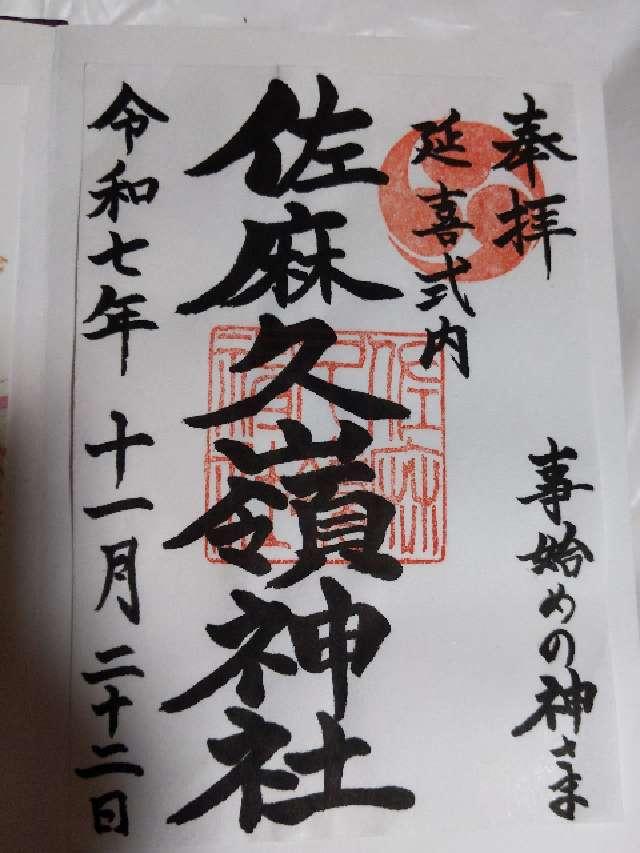 奉拝
事始めの神さま
延喜式内
佐麻久嶺神社
令和七年 十一月 二十二日